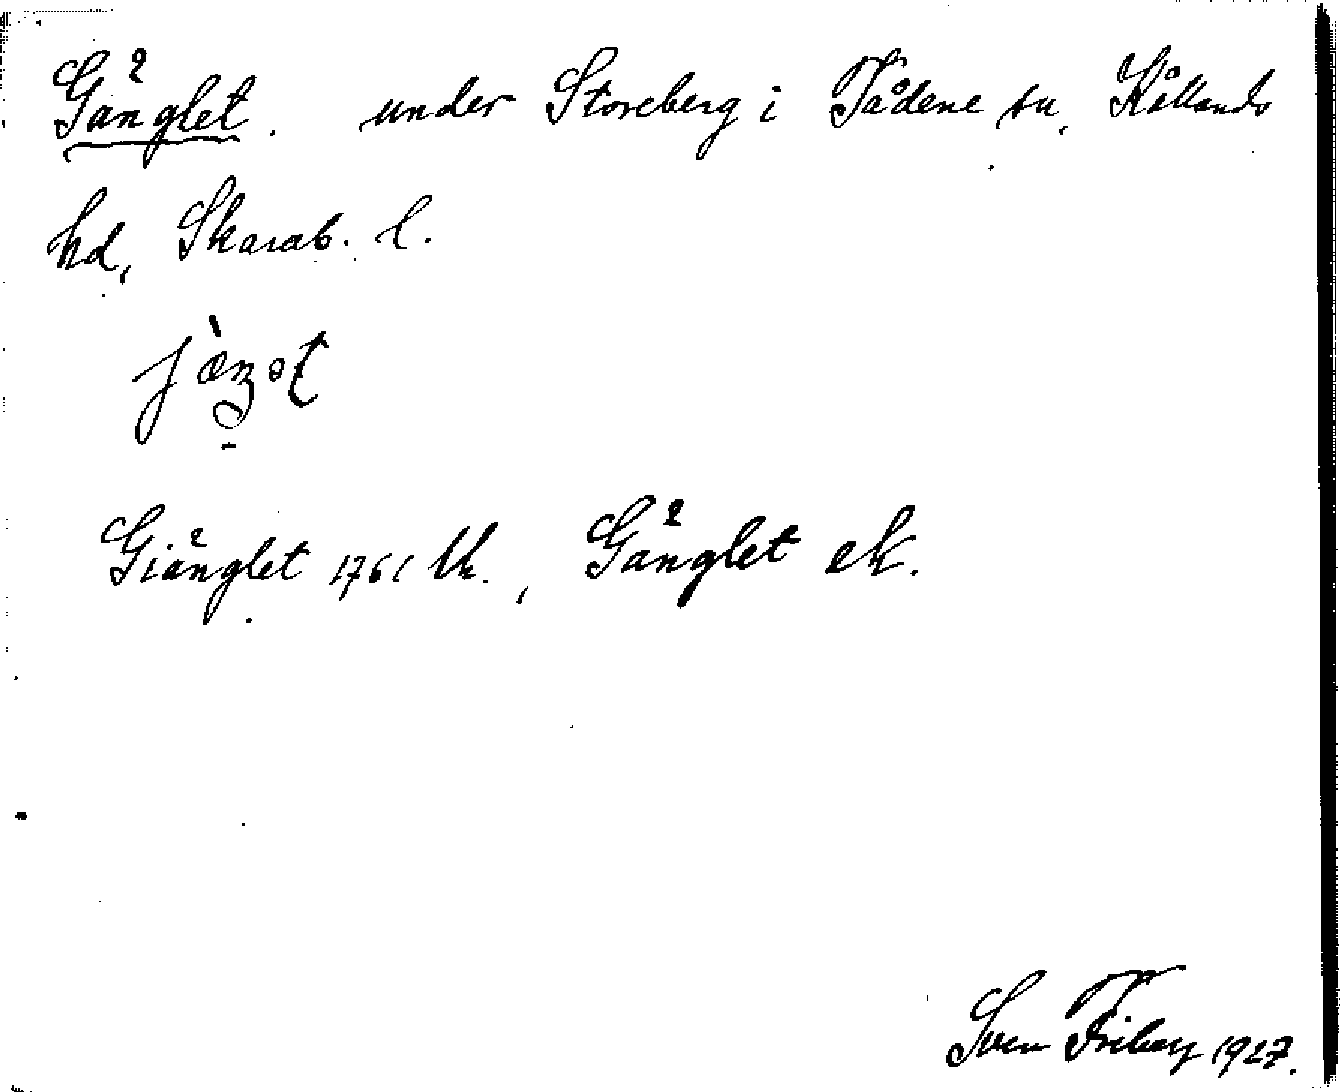 Gänglet. under Storeberg i Tådene sn, Kållands
hd, Skarab. l.
Giänglet 1761 lk., Gänglet ek.
Sven Friberg 1927.